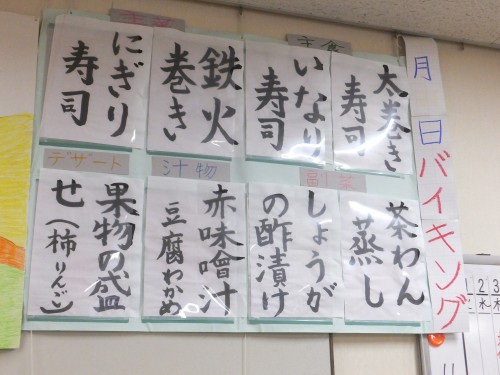 月 日バイキング
主食
太巻き
寿司
いなり
寿司
主菜
鉄火
巻き
にぎり
寿司
副菜
茶わん
蒸し
しょうが
の酢漬け
汁物
赤味噌汁
豆腐わかめ
デザート
果物の盛
せ(柿りんご)
1 2 3
水 木